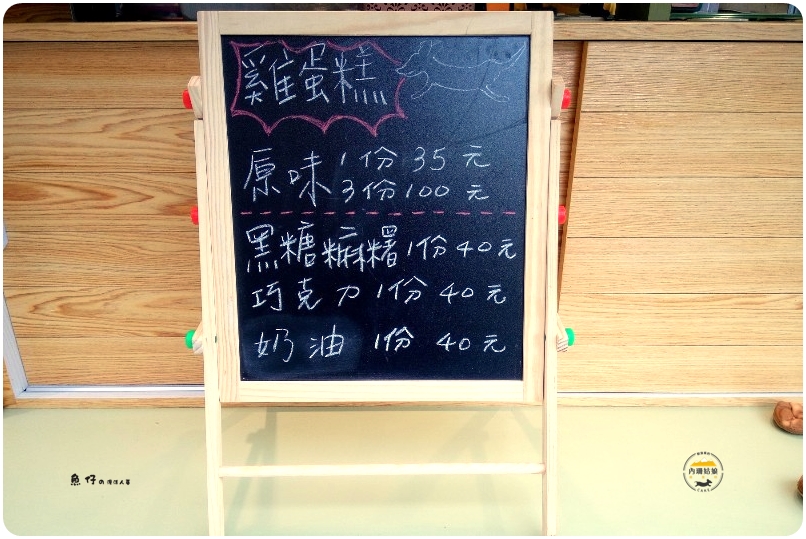 雞蛋糕
原味 1份 35 元
3份 100 元
黑糖麻糬 1份 40元
巧克力 1份 40 元
奶油 1份 40 元
魚仔の
內珊姑娘